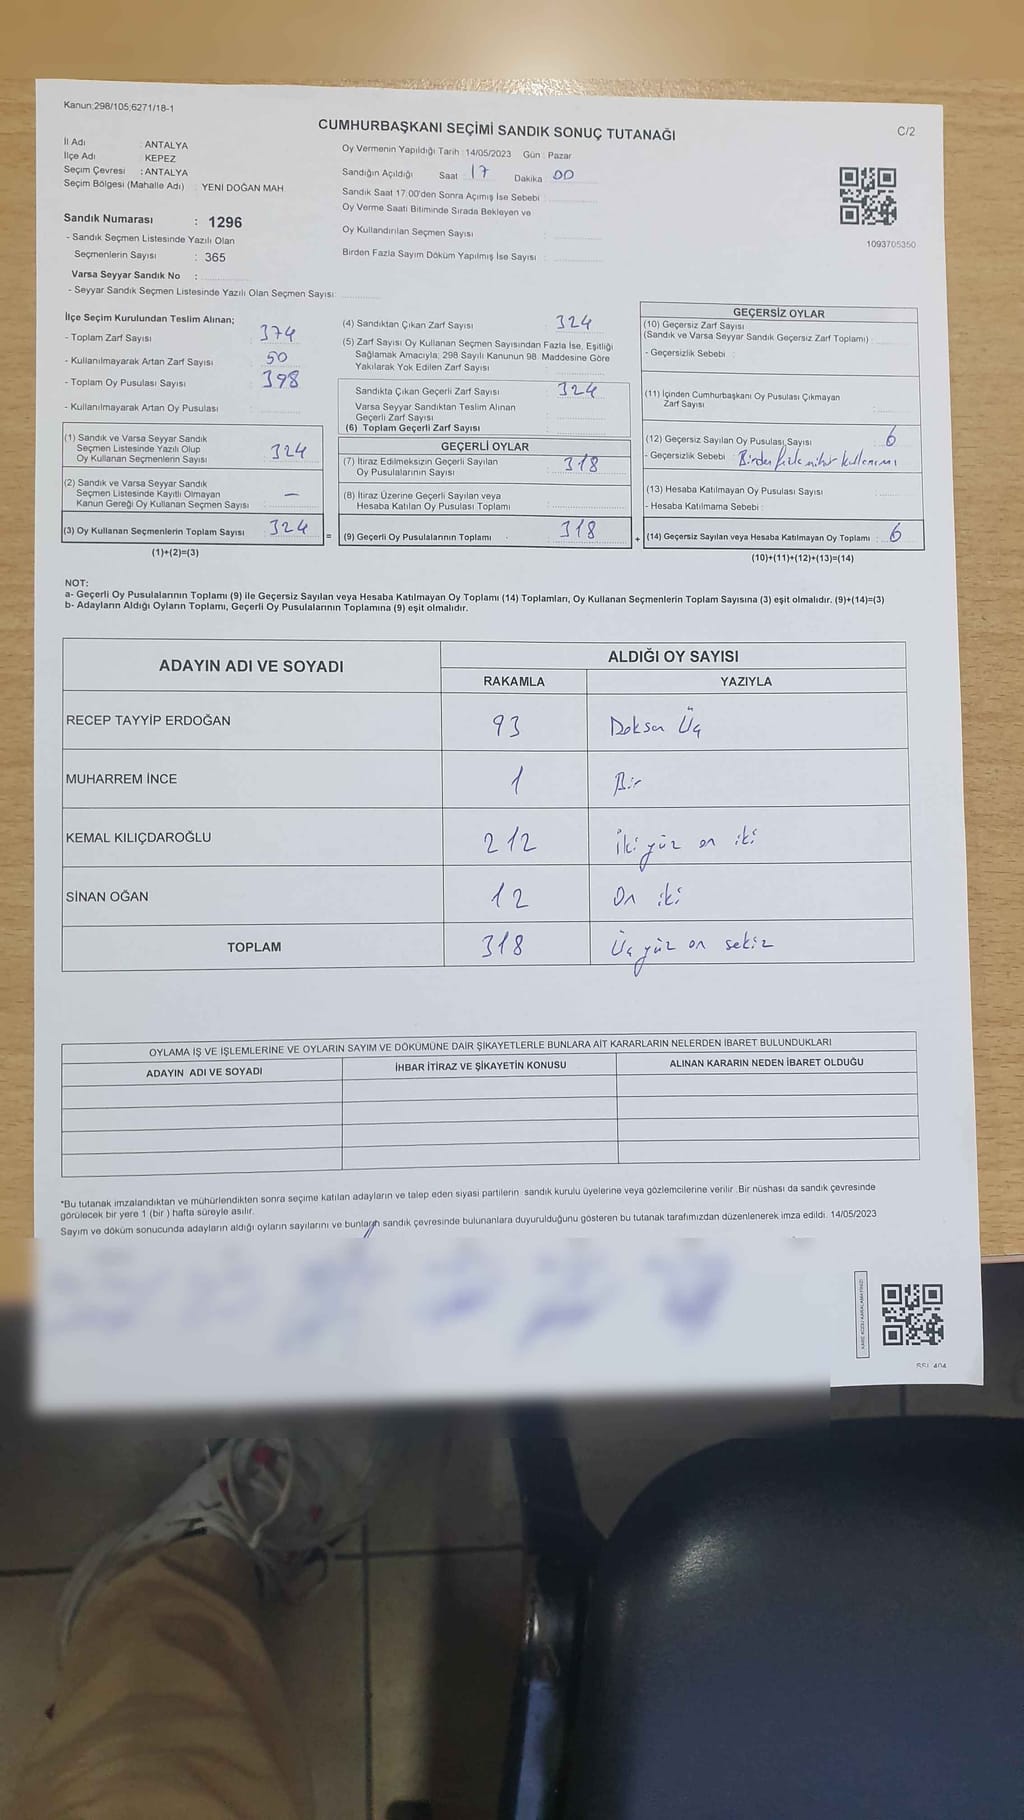 Kanun:298/105;6271/18-1
CUMHURBAŞKANI SEÇİMİ SANDIK SONUÇ TUTANAĞI
C/2
İl Adı : ANTALYA
İlçe Adı : KEPEZ
Seçim Çevresi : ANTALYA
Seçim Bölgesi (Mahalle Adı) : YENİ DOĞAN MAH
Sandık Numarası : 1296
- Sandık Seçmen Listesinde Yazılı Olan
Seçmenlerin Sayısı : 365
Varsa Seyyar Sandık No :
- Seyyar Sandık Seçmen Listesinde Yazılı Olan Seçmen Sayısı:
Oy Vermenin Yapıldığı Tarih : 14/05/2023 Gün : Pazar
Sandığın Açıldığı Saat 17 Dakika 00
Sandık Saat 17:00'den Sonra Açımış İse Sebebi :
Oy Verme Saati Bitiminde Sırada Bekleyen ve
Oy Kullandırılan Seçmen Sayısı :
Birden Fazla Sayım Döküm Yapılmış İse Sayısı :
1093705350
İlçe Seçim Kurulundan Teslim Alınan;
- Toplam Zarf Sayısı : 374
- Kullanılmayarak Artan Zarf Sayısı : 50
- Toplam Oy Pusulası Sayısı : 398
- Kullanılmayarak Artan Oy Pusulası :
(1) Sandık ve Varsa Seyyar Sandık
Seçmen Listesinde Yazılı Olup
Oy Kullanan Seçmenlerin Sayısı : 324
(2) Sandık ve Varsa Seyyar Sandık
Seçmen Listesinde Kayıtlı Olmayan
Kanun Gereği Oy Kullanan Seçmen Sayısı : —
(3) Oy Kullanan Seçmenlerin Toplam Sayısı : 324
(1)+(2)=(3)
=
(4) Sandıktan Çıkan Zarf Sayısı : 324
(5) Zarf Sayısı Oy Kullanan Seçmen Sayısından Fazla İse, Eşitliği
Sağlamak Amacıyla, 298 Sayılı Kanunun 98. Maddesine Göre
Yakılarak Yok Edilen Zarf Sayısı :
Sandıkta Çıkan Geçerli Zarf Sayısı : 324
Varsa Seyyar Sandıktan Teslim Alınan
Geçerli Zarf Sayısı :
(6) Toplam Geçerli Zarf Sayısı :
GEÇERLİ OYLAR
(7) İtiraz Edilmeksizin Geçerli Sayılan
Oy Pusulalarının Sayısı : 318
(8) İtiraz Üzerine Geçerli Sayılan veya
Hesaba Katılan Oy Pusulası Toplamı :
(9) Geçerli Oy Pusulalarının Toplamı : 318
+
GEÇERSİZ OYLAR
(10) Geçersiz Zarf Sayısı
(Sandık ve Varsa Seyyar Sandık Geçersiz Zarf Toplamı) :
- Geçersizlik Sebebi :
(11) İçinden Cumhurbaşkanı Oy Pusulası Çıkmayan
Zarf Sayısı :
(12) Geçersiz Sayılan Oy Pusulası Sayısı : 6
- Geçersizlik Sebebi : Birden fazla mühür kullanımı
(13) Hesaba Katılmayan Oy Pusulası Sayısı :
- Hesaba Katılmama Sebebi :
(14) Geçersiz Sayılan veya Hesaba Katılmayan Oy Toplamı : 6
(10)+(11)+(12)+(13)=(14)
NOT:
a- Geçerli Oy Pusulalarının Toplamı (9) ile Geçersiz Sayılan veya Hesaba Katılmayan Oy Toplamı (14) Toplamları, Oy Kullanan Seçmenlerin Toplam Sayısına (3) eşit olmalıdır. (9)+(14)=(3)
b- Adayların Aldığı Oyların Toplamı, Geçerli Oy Pusulalarının Toplamına (9) eşit olmalıdır.
ADAYIN ADI VE SOYADI
ALDIĞI OY SAYISI
RAKAMLA YAZIYLA
RECEP TAYYİP ERDOĞAN 93 Doksan Üç
MUHARREM İNCE 1 Bir
KEMAL KILIÇDAROĞLU 212 İki yüz on iki
SİNAN OĞAN 12 On iki
TOPLAM 318 Üç yüz on sekiz
OYLAMA İŞ VE İŞLEMLERİNE VE OYLARIN SAYIM VE DÖKÜMÜNE DAİR ŞİKAYETLERLE BUNLARA AİT KARARLARIN NELERDEN İBARET BULUNDUKLARI
ADAYIN ADI VE SOYADI İHBAR İTİRAZ VE ŞİKAYETİN KONUSU ALINAN KARARIN NEDEN İBARET OLDUĞU
*Bu tutanak imzalandıktan ve mühürlendikten sonra seçime katılan adayların ve talep eden siyasi partilerin sandık kurulu üyelerine veya gözlemcilerine verilir. Bir nüshası da sandık çevresinde
görülecek bir yere 1 (bir ) hafta süreyle asılır.
Sayım ve döküm sonucunda adayların aldığı oyların sayılarını ve bunların sandık çevresinde bulunanlara duyurulduğunu gösteren bu tutanak tarafımızdan düzenlenerek imza edildi. 14/05/2023